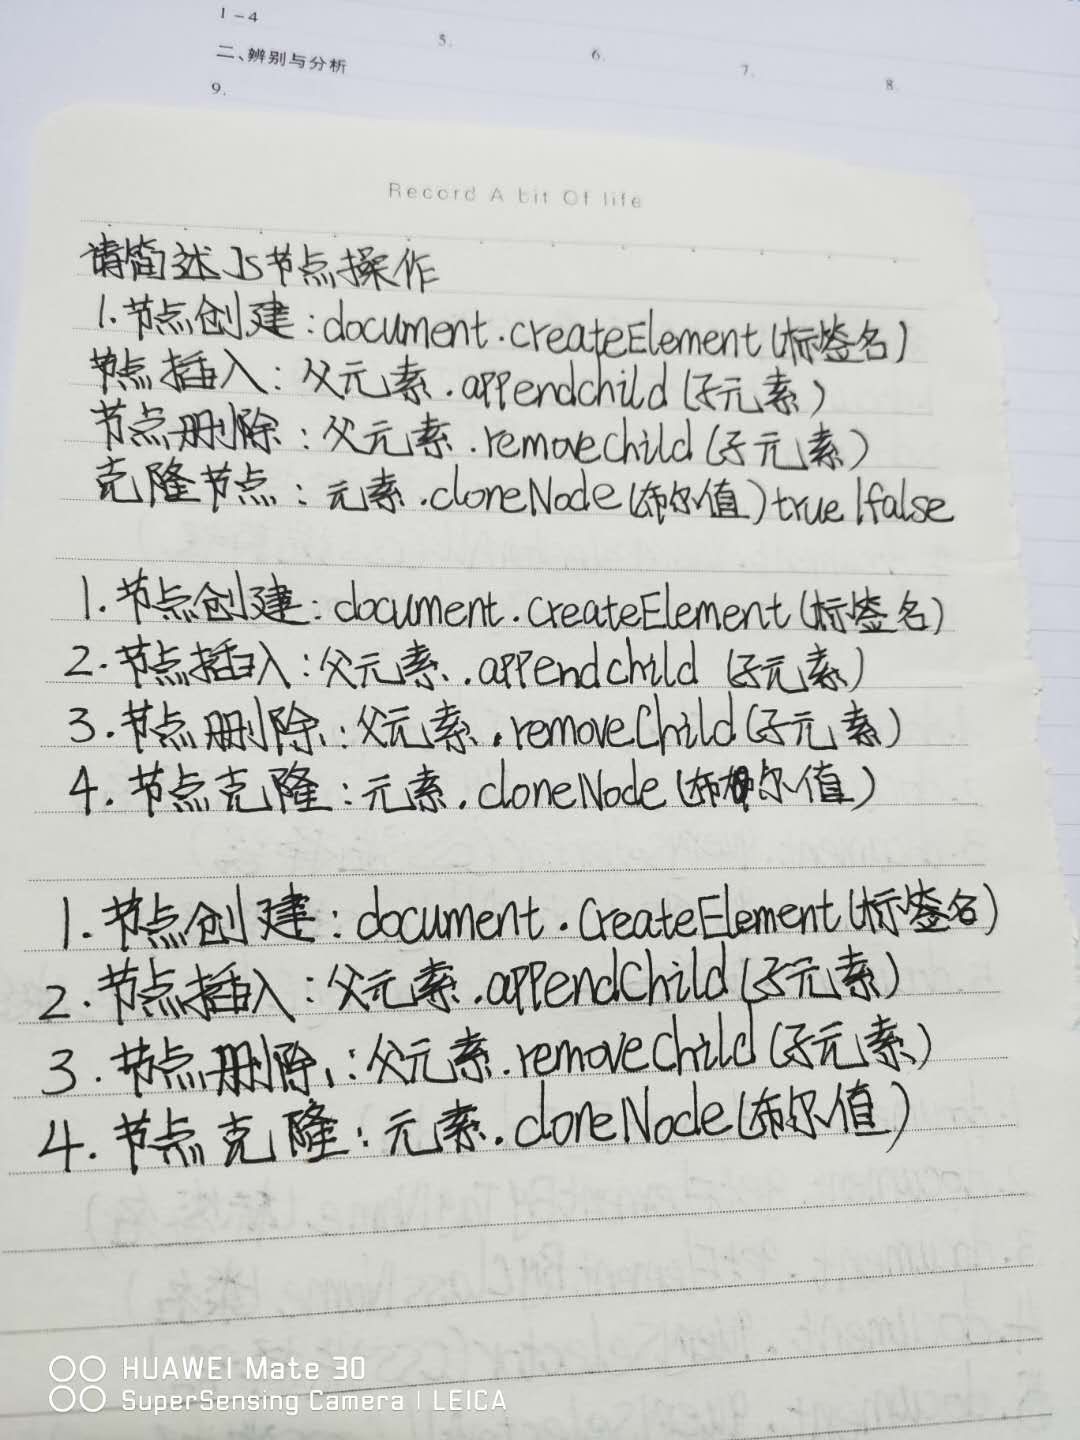 1-4
5.
6.
7.
8.
二、辨别与分析
9.
Record A bit Of life
请简述Js节点操作
1.节点创建：document.createElement(标签名)
节点插入：父元素.appendchild(子元素)
节点删除：父元素.removechild(子元素)
克隆节点：元素.cloneNode(布尔值)true|false
1.节点创建：document.createElement(标签名)
2.节点插入：父元素.appendchild (子元素)
3.节点删除：父元素.removeChild(子元素)
4.节点克隆：元素.cloneNode(布尔值)
1.节点创建：document.CreateElement(标签名)
2.节点插入：父元素.appendChild(子元素)
3.节点删除：父元素.removeChild(子元素)
4.节点克隆：元素.cloneNode(布尔值)
HUAWEI Mate 30
SuperSensing Camera | LEICA